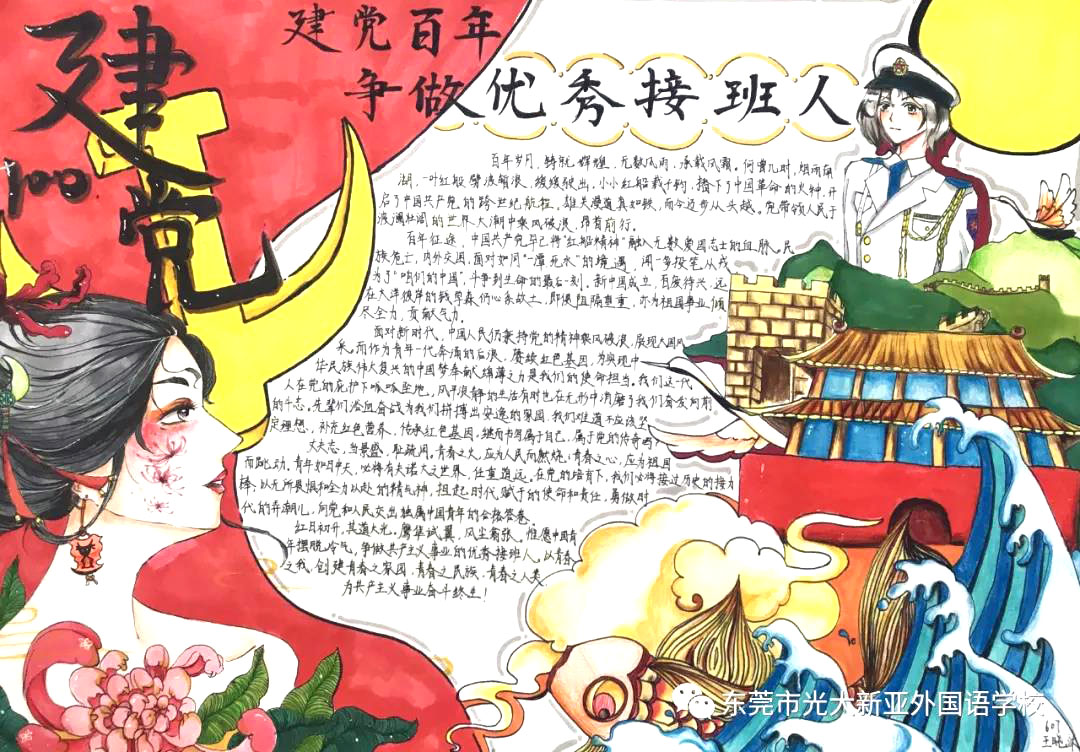 建党
100
建党百年
争做优秀接班人
百年岁月，铸就辉煌，无数风雨，承载风霜。何曾几时，烟雨南
湖，一叶红船劈波斩浪，缓缓驶出，小小红船载千钧，播下了中国革命的火种，开
启了中国共产党的跨世纪航程。雄关漫道真如铁，而今迈步从头越。党带领人民于
波澜壮阔的世界大潮中乘风破浪，昂首前行。
百年征途，中国共产党早已将“红船精神”融入无数爱国志士的血脉。民
族危亡，内外交困，面对如同“一潭死水”的境遇，闻一多投笔从戎
为了“咱们的中国”，斗争到生命的最后一刻，新中国成立，百废待兴，远
在大洋彼岸的钱学森仍心系故土，即便阻隔重重，亦为祖国事业倾
尽全力，贡献气力。
面对新时代，中国人民仍秉持党的精神乘风破浪，展现大国风
采。而作为青年一代奔涌的后浪，赓续红色基因，为实现中
华民族伟大复兴的中国梦奉献绵薄之力是我们的使命担当。我们这一代
人在党的庇护下咏咏坠地，风平浪静的生活有时也在无形中消磨了我们奋发向前
的斗志。先辈们浴血奋战为我们拼搏出安逸的家园，我们难道不应该坚
定理想，补充红色营养，传承红色基因，继而书写属于自己，属于党的传奇吗？
丈夫志，当景盛，耻疏闲，青春之火，应为人民而燃烧；青春之心，应为祖国
而跳动。青年如日中天，必将有大诺大这世界，任重道远。在党的培育下，我们必将接过历史的接力
棒，以无所畏惧和全力以赴的精气神，担起时代赋予的使命和责任，勇做时
代的弄潮儿，向党和人民交出独属中国青年的合格答卷。
红日初升，其道大光，鹰隼试翼，风尘翕张。惟愿中国青
年摆脱冷气，争做共产主义事业的优秀接班人，以青春
之我，创建青春之家园，青春之民族，青春之人类
为共产主义事业奋斗终生！
东莞市光大新亚外国语学校
607